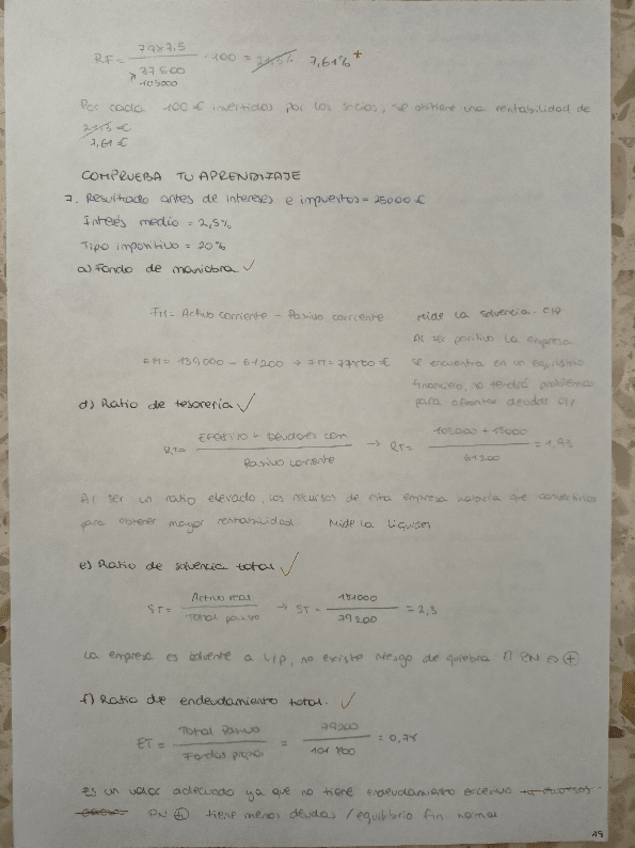 RF = 7987,5 / 37500 105000 · 100 = 21,3% 7,61%
Por cada 100 € invertidos por los socios, se obtiene una rentabilidad de
21,3 €
7,61 €
COMPRUEBA TU APRENDIZAJE
7. Resultado antes de intereses e impuestos = 25000 €
Interés medio = 2,5%
Tipo impositivo = 20%
a) Fondo de maniobra ✓
FM = Activo corriente - Pasivo corriente Mide la solvencia C/P
Al ser positivo la empresa
FM = 139000 - 61200 → FM = 77800 € se encuentra en un equilibrio
financiero, no tendrá problemas
para afrontar deudas C/P
d) Ratio de tesorería ✓
RT = Efectivo + Deudores com / Pasivo corriente → RT = + 15000 / 61200 = 1,93
Al ser un ratio elevado, los recursos de esta empresa que
para obtener mayor rentabilidad Mide la liquidez
e) Ratio de solvencia total ✓
ST = Activo real / Total pasivo → ST = 181000 / 79200 = 2,3
La empresa es solvente a L/P, no existe riesgo de quiebra El PN es ⊕
f) Ratio de endeudamiento total. ✓
ET = Total Pasivo / Fondos propios = 79200 / 101800 = 0,78
Es un valor adecuado ya que no tiene endeudamiento excesivo
PN ⊕ tiene menos deudas / equilibrio fin normal
19